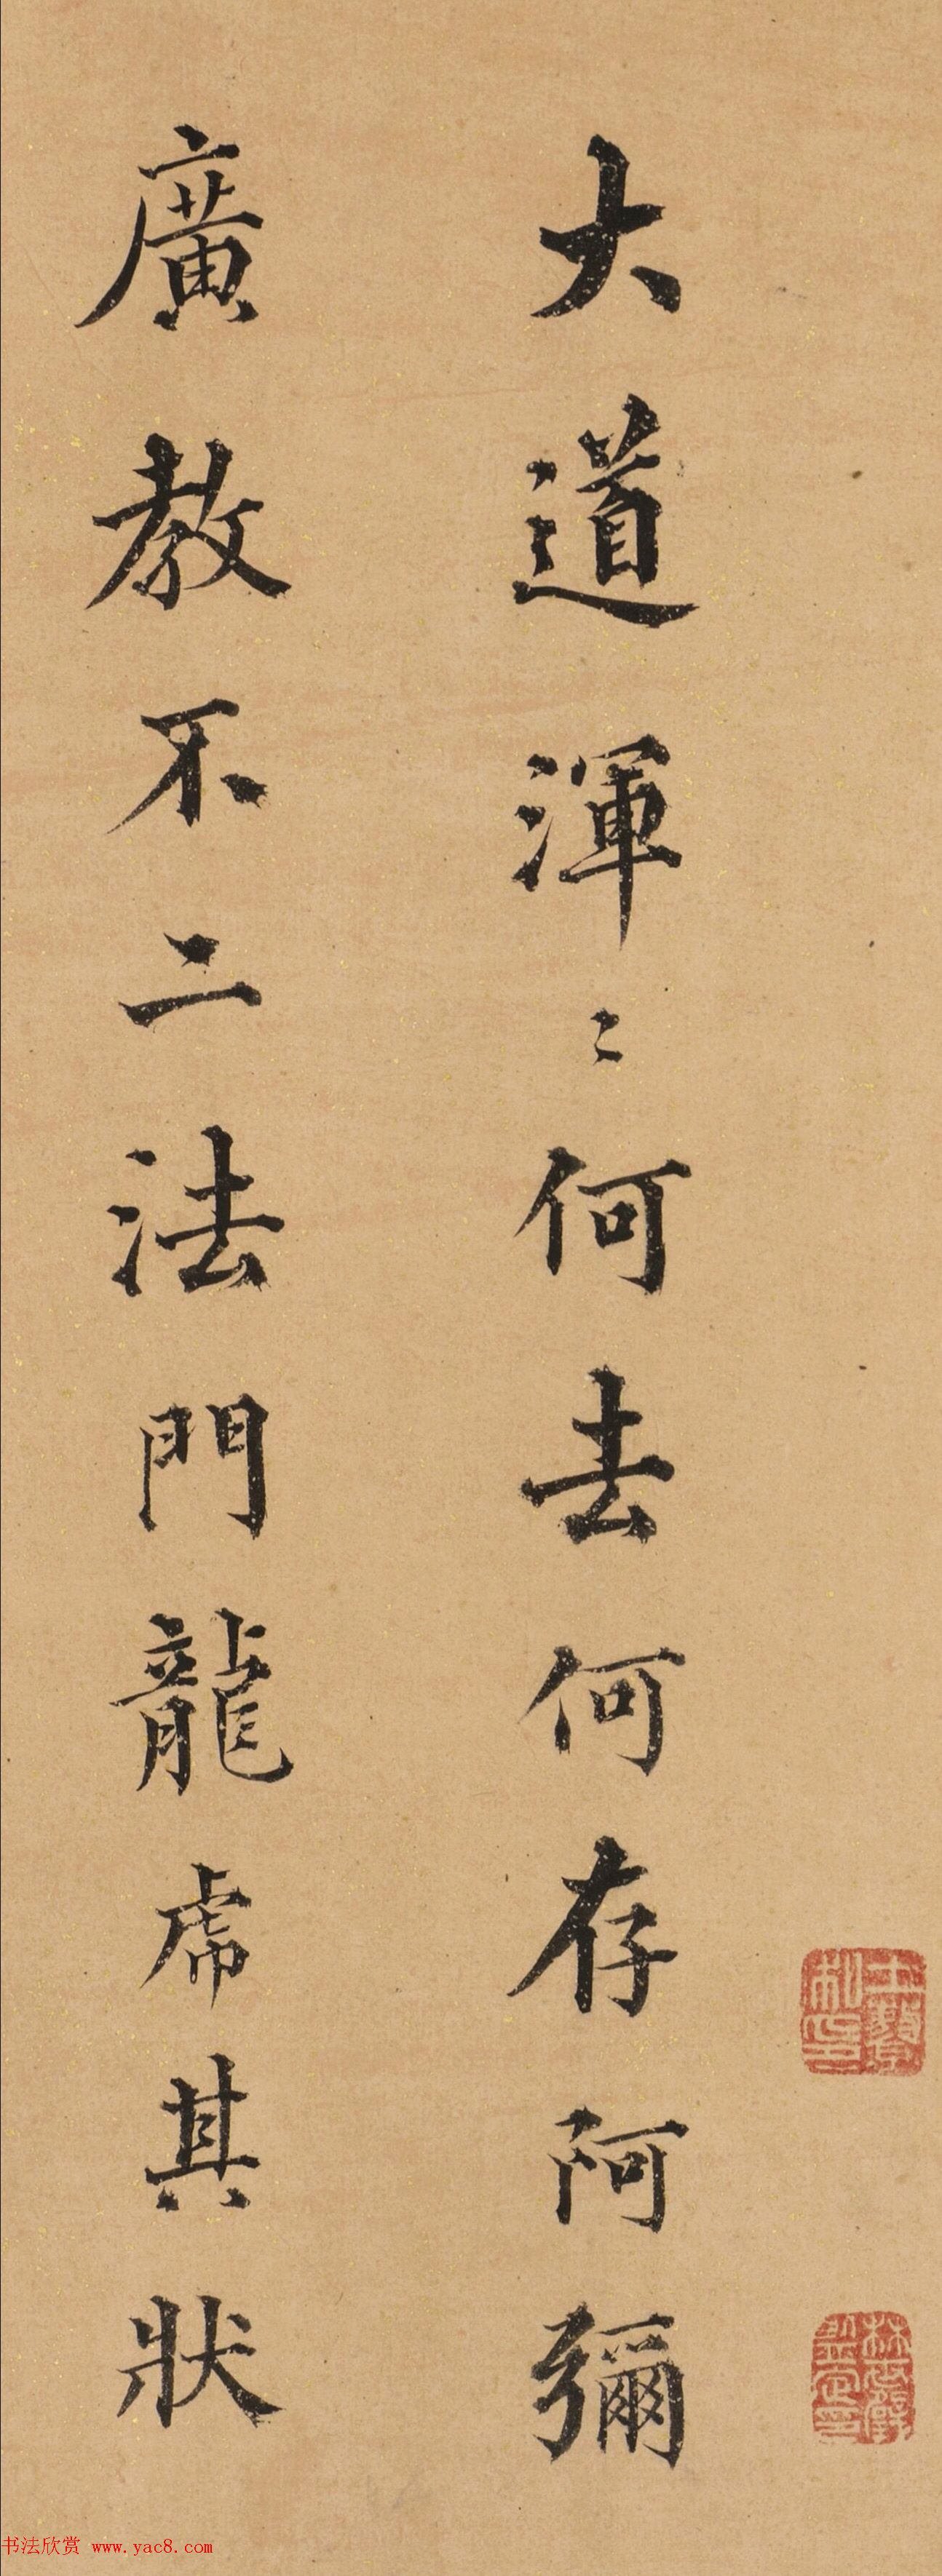 大道渾〻何去何存阿彌
廣教不二法門龍虎其狀
书法欣赏 www.yac8.com